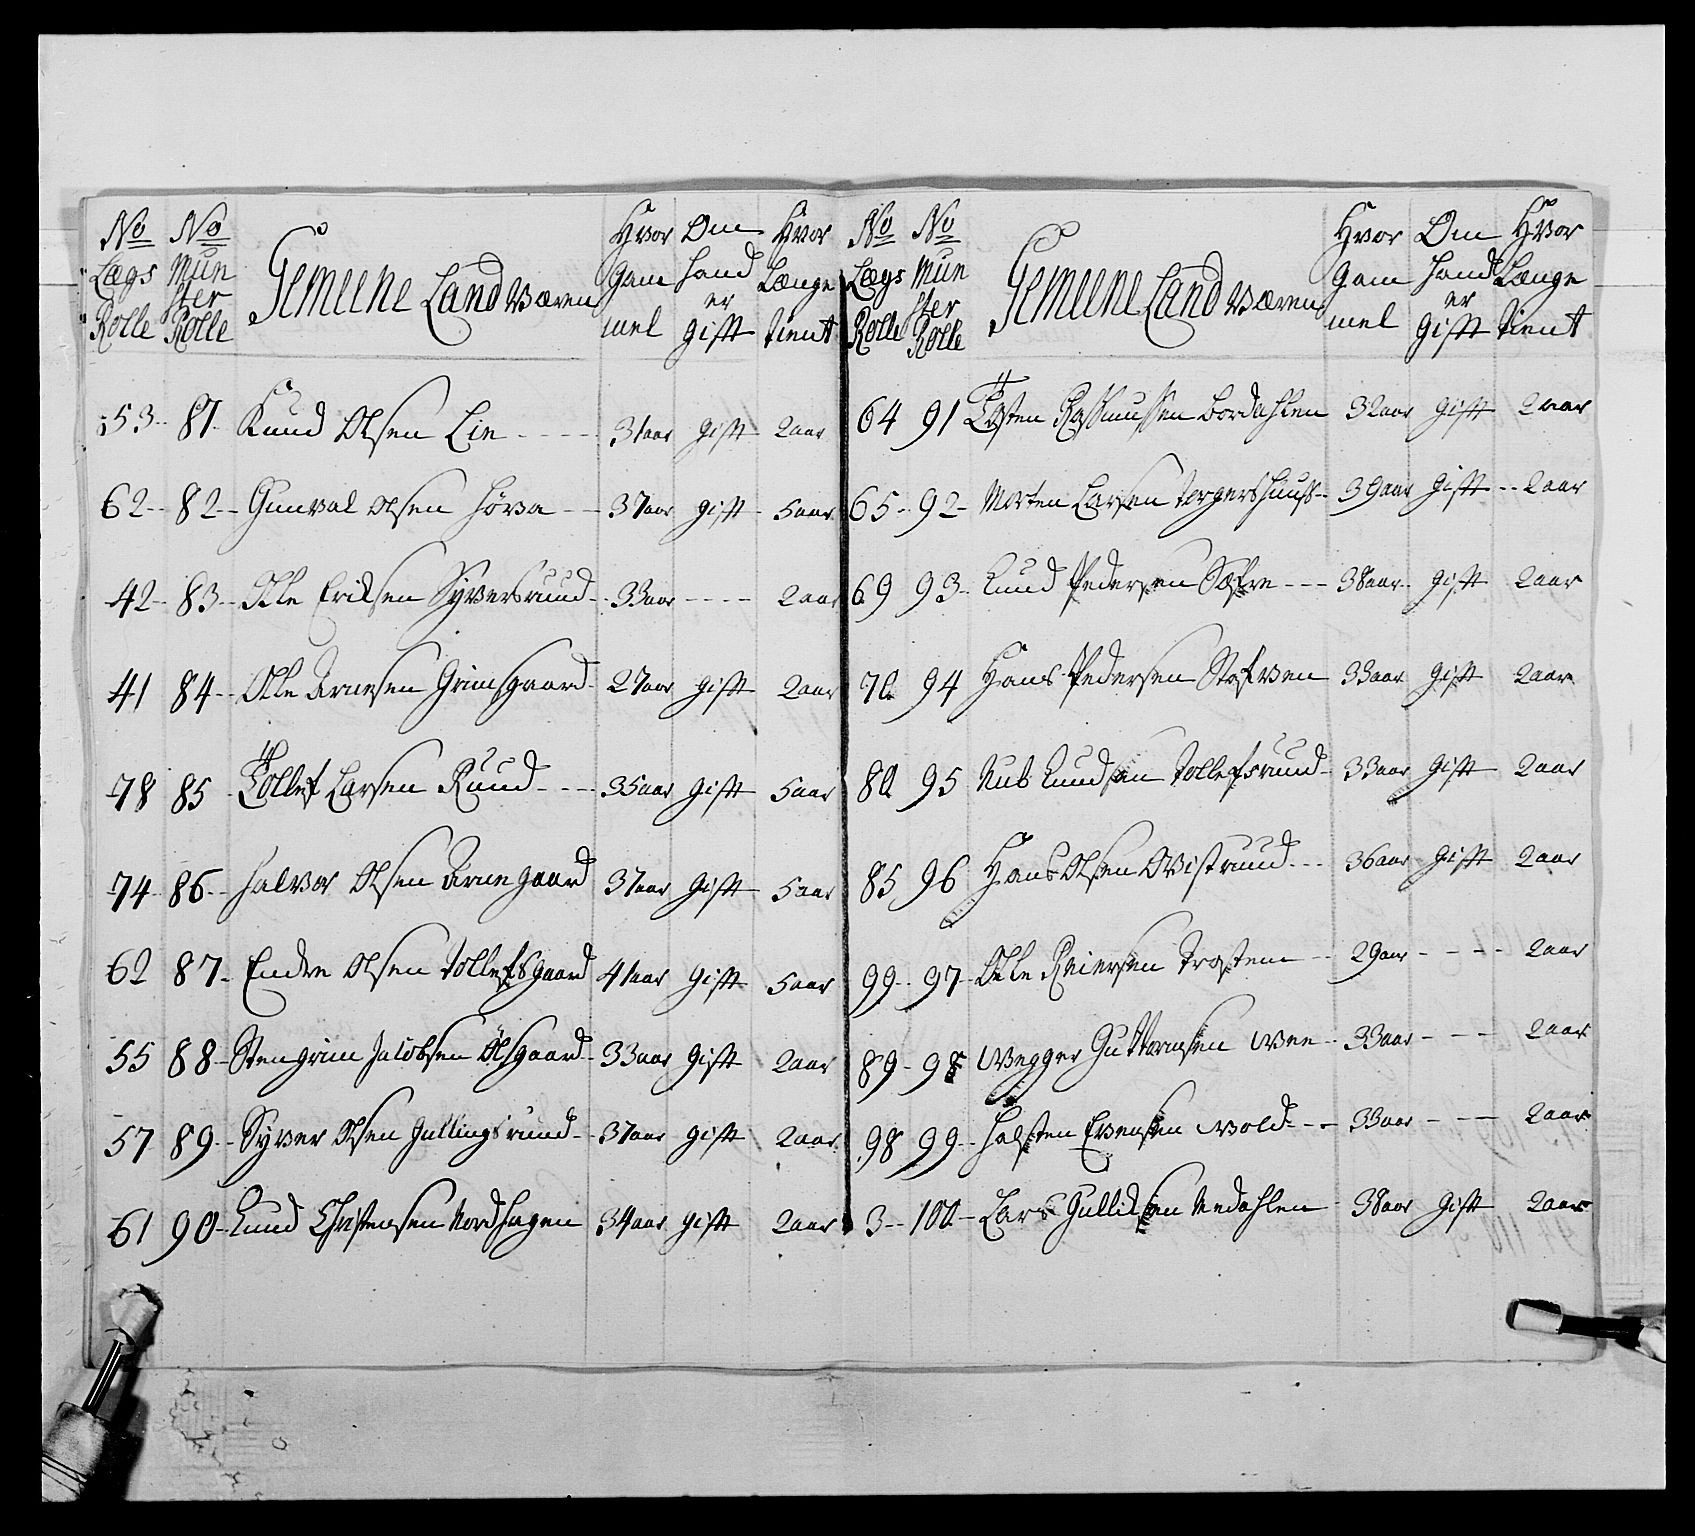 No Lægs Rolle | No Munster Rolle | Gemeene Land Væren | Hvor Gammel | Om hand er gift | Hvor Længe tient
53 87 Knud Olsen Lie 31 aar gift 2 aar
62 82 Gunval Olsen Hörva 37 aar gift 5 aar
42 83 Olle Eriksen Syversruud 33 aar 2 aar
41 84 Olle Arnesen Grimsgaard 27 aar gift 2 aar
78 85 Tollef Larsen Ruud 35 aar gift 5 aar
74 86 Halvor Olsen Arnegaard 37 aar gift 5 aar
62 87 Endre Olsen Tollefsgaard 41 aar gift 5 aar
55 88 Stengrim Jacobsen Ölsgaard 33 aar gift 2 aar
57 89 Syver Olsen Gullingsruud 37 aar gift 2 aar
61 90 Knud Christensen Nordhagen 34 aar gift 2 aar
No Lægs Rolle | No Munster Rolle | Gemeene Land Væren | Hvor Gammel | Om hand er gift | Hvor Længe tient
64 91 Tosten Rassmussen Bordahlen 32 aar gift 2 aar
65 92 Morten Larsen Torgershuus 39 aar gift 2 aar
69 93 Knud Pedersen Sæfre 38 aar gift 2 aar
70 94 Hans Pedersen Stafven 33 aar gift 2 aar
80 95 Nub Knudsen Tollefsruud 33 aar gift 2 aar
85 96 Hans Olsen Qvistruud 36 aar gift 2 aar
99 97 Olle Reiersen Trostem 29 aar 2 aar
89 98 Vegger Guttormsen Wee 33 aar 2 aar
98 99 Halsten Evensen Wold 33 aar 2 aar
3 100 Lars Gulliksen Nedahlen 38 aar gift 2 aar